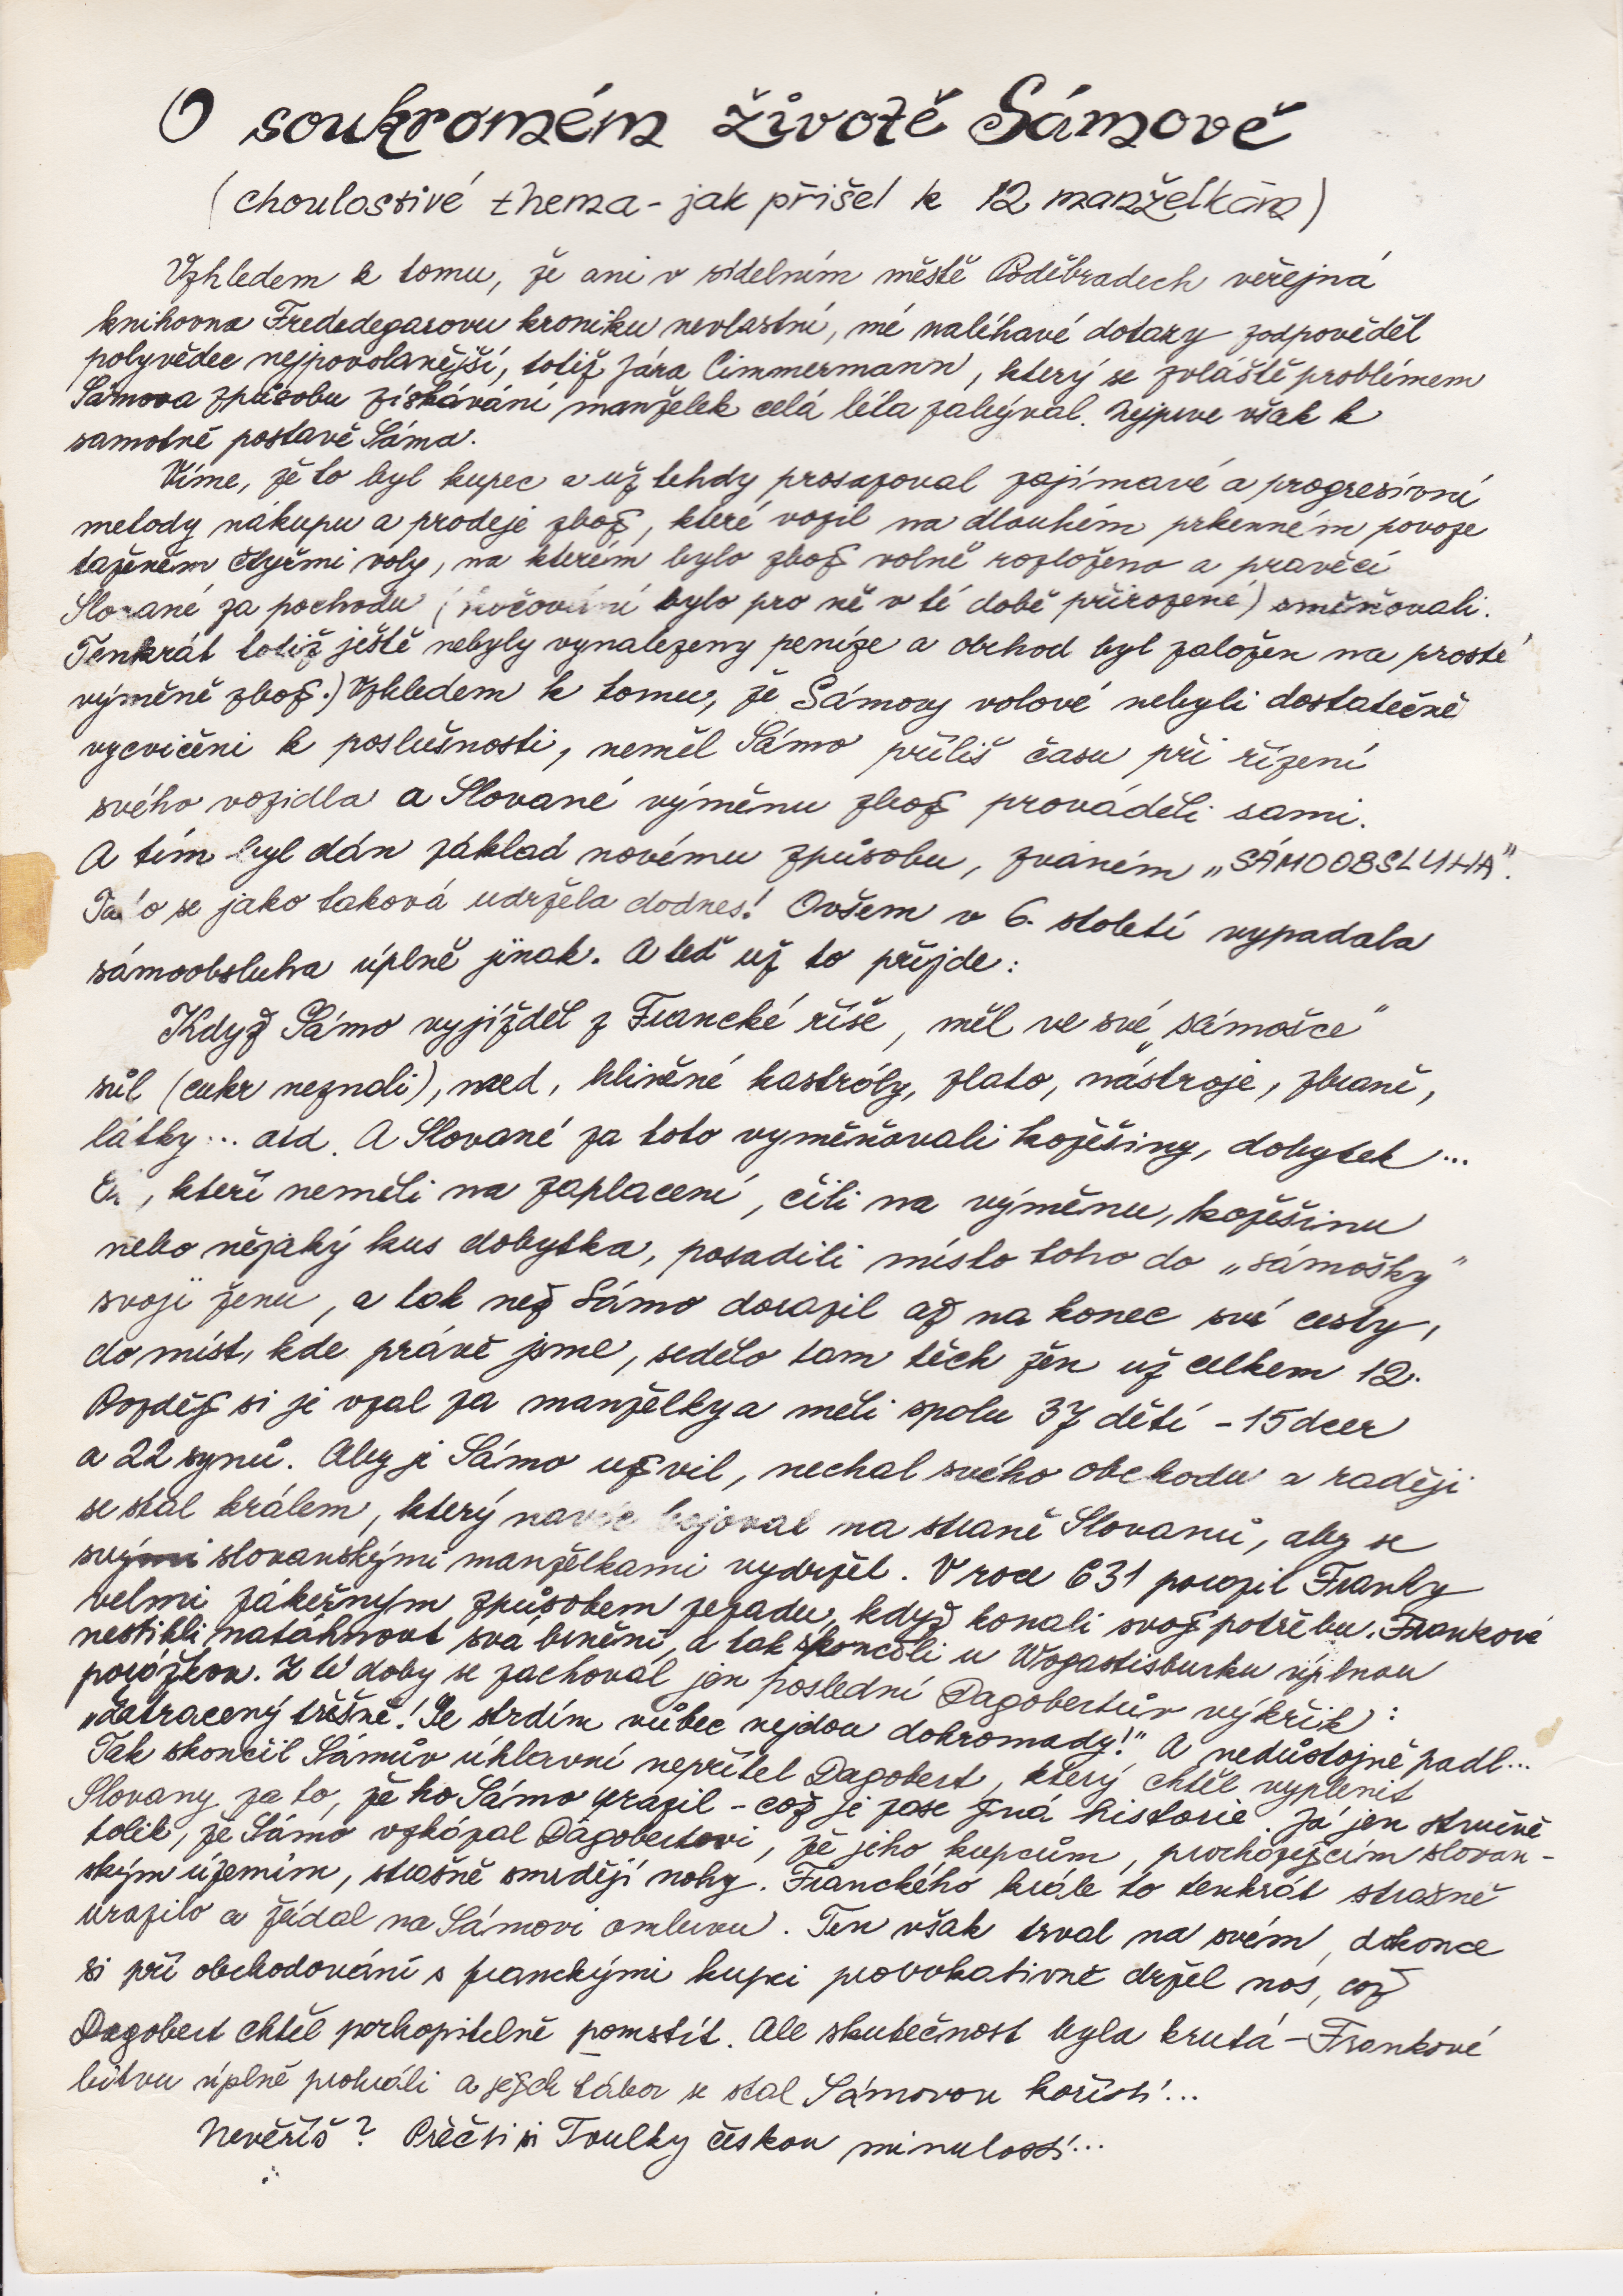 O soukromém životě Sámově
(choulostivé thema - jak přišel k 12 manželkám)
Vzhledem k tomu, že ani v sídelním městě Poděbradech veřejná
knihovna Frededegarovu kroniku nevlastní, mé naléhavé dotazy zodpověděl
polyvědec nejpovolanější, totiž Jára Cimmermann, který se zvláště problémem
Sámova způsobu získávání manželek celá léta zabýval. Nejprve však k
samotné postavě Sáma.
Víme, že to byl kupec a už tehdy prosazoval zajímavé a progresivní
metody nákupu a prodeje zboží, které vozil na dlouhém prkenném povoze
taženém čtyřmi voly, na kterém bylo zboží volně rozloženo a pravěcí
Slované za pochodu (kočování bylo pro ně v té době přirozené) směňovali.
Tenkrát totiž ještě nebyly vynalezeny peníze a obchod byl založen na prosté
výměně zboží.) Vzhledem k tomu, že Sámovy volové nebyli dostatečně
vycvičeni k poslušnosti, neměl Sámo příliš času při řízení
svého vozidla a Slované výměnu zboží prováděli sami.
A tím byl dán základ novému způsobu, zvaném „SÁMOOBSLUHA".
se jako taková udržela dodnes! Ovšem v 6. století vypadala
sámoobsluha úplně jinak. A teď už to přijde:
Když Sámo vyjížděl z Francké říše, měl ve své „sámošce"
sůl (cukr neznali), med, hliněné kastróly, zlato, nástroje, zbraně,
látky... atd. A Slované za toto vyměňovali kožešiny, dobytek...
, kteří neměli na zaplacení, čili na výměnu, kožešinu
nebo nějaký kus dobytka, posadili místo toho do „sámošky"
svoji ženu, a tak než Sámo dorazil až na konec své cesty,
do míst, kde právě jsme, sedělo tam těch žen už celkem 12.
Později si je vzal za manželky a měli spolu 37 dětí - 15 dcer
a 22 synů. Aby je Sámo uživil, nechal svého obchodu a raději
se stal králem, který navíc bojoval na straně Slovanů, aby se
svými slovanskými manželkami vydržel. V roce 631 porazil Franky
velmi zákeřným způsobem zezadu, když konali svoji potřebu. Frankové
nestihli natáhnout svá brnění, a tak skončili u Wogastisburku úplnou
porážkou. Z té doby se zachoval jen poslední Dagobertův výkřik:
„Zatracený třešně! Se strdím vůbec nejdou dohromady!" A nedůstojně padl...
Tak skončil Sámův úhlavní nepřítel Dagobert, který chtěl vyplenit
Slovany za to, že ho Sámo urazil - což je zase jiná historie. Já jen stručně
tolik, že Sámo vzkázal Dagobertovi, že jeho kupcům, procházejícím slovan-
ským územím, strašně smrdějí nohy. Franckého krále to tenkrát strašně
urazilo a žádal na Sámovi omluvu. Ten však trval na svém, dokonce
si při obchodování s franckými kupci provokativně držel nos, což
Dagobert chtěl pochopitelně pomstít. Ale skutečnost byla krutá - Frankové
bitvu úplně prohráli a jejich tábor se stal Sámovou kořistí...
Nevěříš? Přečti si Toulky českou minulostí...